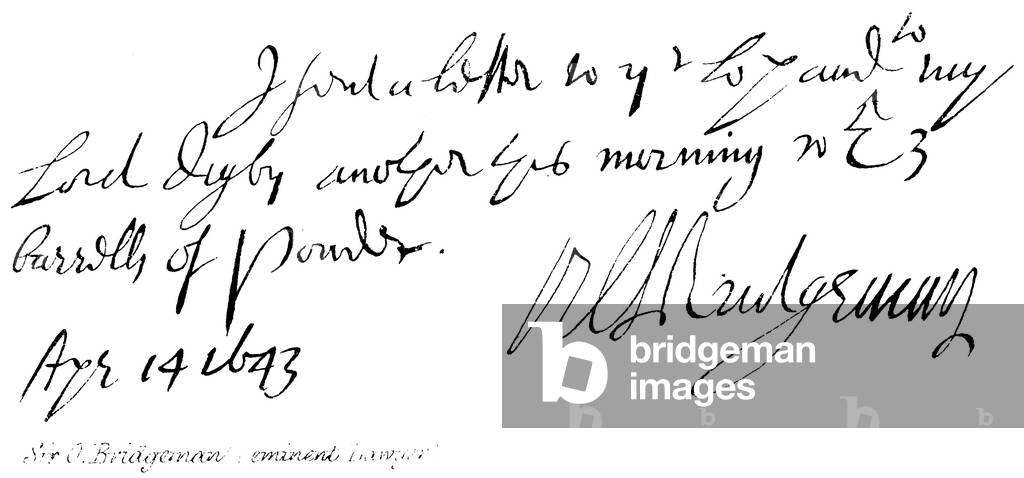 I send a letter to yr Lop and to my
Lord Digby another this morning wth 3
barrells of Powder.
Orl Bridgeman
Apr 14 1643
Sir O. Bridgeman, eminent Lawyer
bridgeman
images